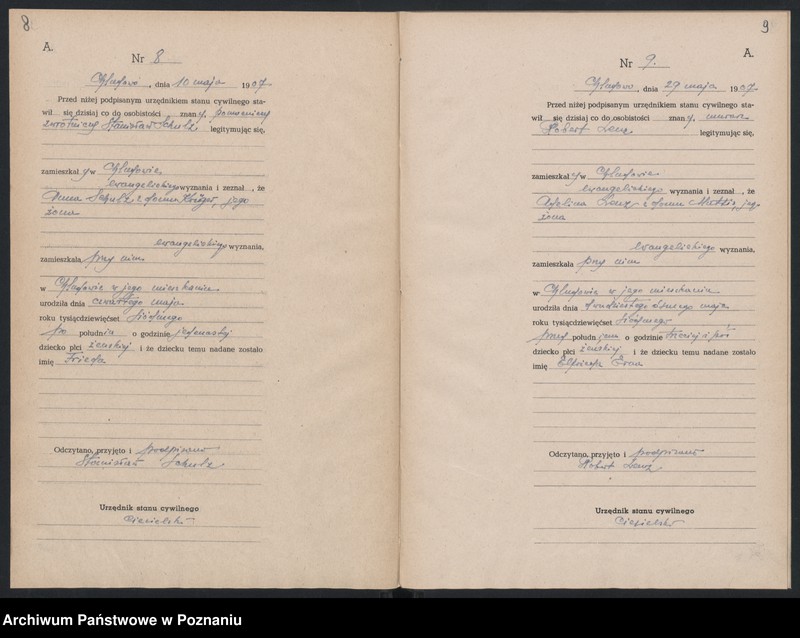 8
A.
Nr 8
Chludowo, dnia 10 maja 1907
Przed niżej podpisanym urzędnikiem stanu cywilnego sta-
wił się dzisiaj co do osobistości znany, pomocniczy
zwrotniczy Stanisław Schulz legitymując się,
zamieszkały w Chludowie
ewangelickiego wyznania i zeznał, że
Anna Schulz z domu Krüger, jego
żona
ewangelickiego wyznania,
zamieszkała przy nim
w Chludowie w jego mieszkaniu
urodziła dnia czwartego maja
roku tysiącdziewięćset siódmego
po południu o godzinie jedenastej
dziecko płci żeńskiej i że dziecku temu nadane zostało
imię Frieda
Odczytano, przyjęto i podpisano
Stanisław Schulz
Urzędnik stanu cywilnego
Ciesielski
9
A.
Nr 9.
Chludowo, dnia 29 maja 1907
Przed niżej podpisanym urzędnikiem stanu cywilnego sta-
wił się dzisiaj co do osobistości znany, murarz
Robert Lenz legitymując się,
zamieszkały w Chludowie
ewangelickiego wyznania i zeznał, że
Lenz z domu jego
żona
ewangelickiego wyznania,
zamieszkała przy nim
w Chludowie w jego mieszkaniu
urodziła dnia dwudziestego maja
roku tysiącdziewięćset siódmego
przed południem o godzinie trzeciej i pół
dziecko płci żeńskiej i że dziecku temu nadane zostało
imię Erna
Odczytano, przyjęto i podpisano
Robert Lenz
Urzędnik stanu cywilnego
Ciesielski
Archiwum Państwowe w Poznaniu